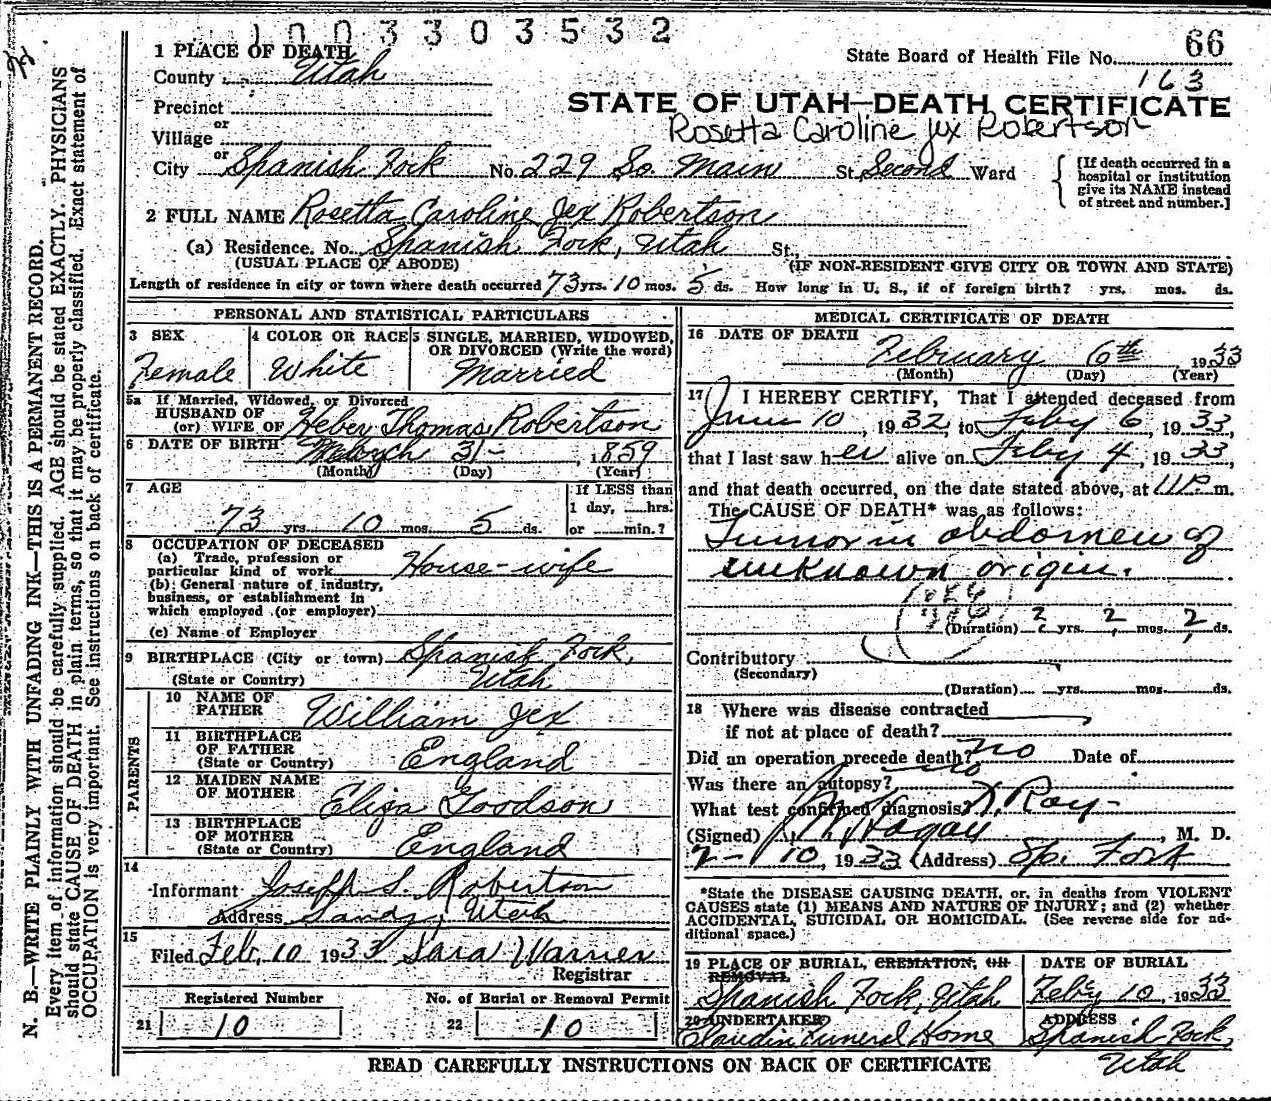 1003303532
1 PLACE OF DEATH
County Utah
State Board of Health File No. 66
163
Precinct
STATE OF UTAH—DEATH CERTIFICATE
or
Village
Rosetta Caroline Jex Robertson
or
City Spanish Fork No. 229 So. Main St. Second Ward
[If death occurred in a
hospital or institution
give its NAME instead
of street and number.]
2 FULL NAME Rosetta Caroline Jex Robertson
(a) Residence. No. Spanish Fork, Utah St.,
(USUAL PLACE OF ABODE) (IF NON-RESIDENT GIVE CITY OR TOWN AND STATE)
Length of residence in city or town where death occurred 73 yrs. 10 mos. 5 ds. How long in U. S., if of foreign birth? yrs. mos. ds.
PERSONAL AND STATISTICAL PARTICULARS
3 SEX
Female
4 COLOR OR RACE
White
5 SINGLE, MARRIED, WIDOWED,
OR DIVORCED (Write the word)
Married
5a If Married, Widowed, or Divorced
HUSBAND OF
(or) WIFE OF Heber Thomas Robertson
6 DATE OF BIRTH March 31- , 1859
(Month) (Day) (Year)
7 AGE
73 yrs. 10 mos. 5 ds.
If LESS than
1 day, hrs.
or min.?
8 OCCUPATION OF DECEASED
(a) Trade, profession or
particular kind of work House-wife
(b) General nature of industry,
business, or establishment in
which employed (or employer)
(c) Name of Employer
9 BIRTHPLACE (City or town) Spanish Fork,
(State or Country) Utah
PARENTS
10 NAME OF
FATHER William Jex
11 BIRTHPLACE
OF FATHER
(State or Country) England
12 MAIDEN NAME
OF MOTHER Eliza Goodson
13 BIRTHPLACE
OF MOTHER
(State or Country) England
14
Informant Joseph S. Robertson
Address Sandy, Utah
15
Filed Feb. 10 1933 Sara Warner
Registrar
Registered Number
21 10
No. of Burial or Removal Permit
22 10
MEDICAL CERTIFICATE OF DEATH
16 DATE OF DEATH
February 6th 1933
(Month) (Day) (Year)
17 I HEREBY CERTIFY, That I attended deceased from
June 10, 1932, to Feby 6, 1933,
that I last saw her alive on Feby 4, 1933,
and that death occurred, on the date stated above, at 11 P m.
The CAUSE OF DEATH* was as follows:
Tumor in abdomen of
unknown origin.
(Duration) 2 yrs. 2 mos. 2 ds.
Contributory
(Secondary)
(Duration) yrs. mos. ds.
18 Where was disease contracted
if not at place of death?
Did an operation precede death? no Date of
Was there an autopsy? no
What test confirmed diagnosis? X Ray-
(Signed) Hagan, M. D.
2-10, 1933 (Address) Sp. Fork
*State the DISEASE CAUSING DEATH, or, in deaths from VIOLENT
CAUSES state (1) MEANS AND NATURE OF INJURY; and (2) whether
ACCIDENTAL, SUICIDAL OR HOMICIDAL. (See reverse side for ad-
ditional space.)
19 PLACE OF BURIAL, CREMATION, OR
REMOVAL
Spanish Fork, Utah
DATE OF BURIAL
Feby 10, 1933
20 UNDERTAKER
Claudin Funeral Home
ADDRESS
Spanish Fork,
Utah
READ CAREFULLY INSTRUCTIONS ON BACK OF CERTIFICATE
N. B.—WRITE PLAINLY WITH UNFADING INK—THIS IS A PERMANENT RECORD.
Every item of information should be carefully supplied. AGE should be stated EXACTLY. PHYSICIANS
should state CAUSE OF DEATH in plain terms, so that it may be properly classified. Exact statement of
OCCUPATION is very important. See instructions on back of certificate.